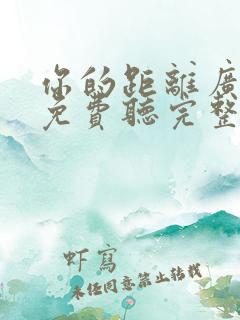 你的距離廣
免費聽完整
虾寫
未经同意禁止转载